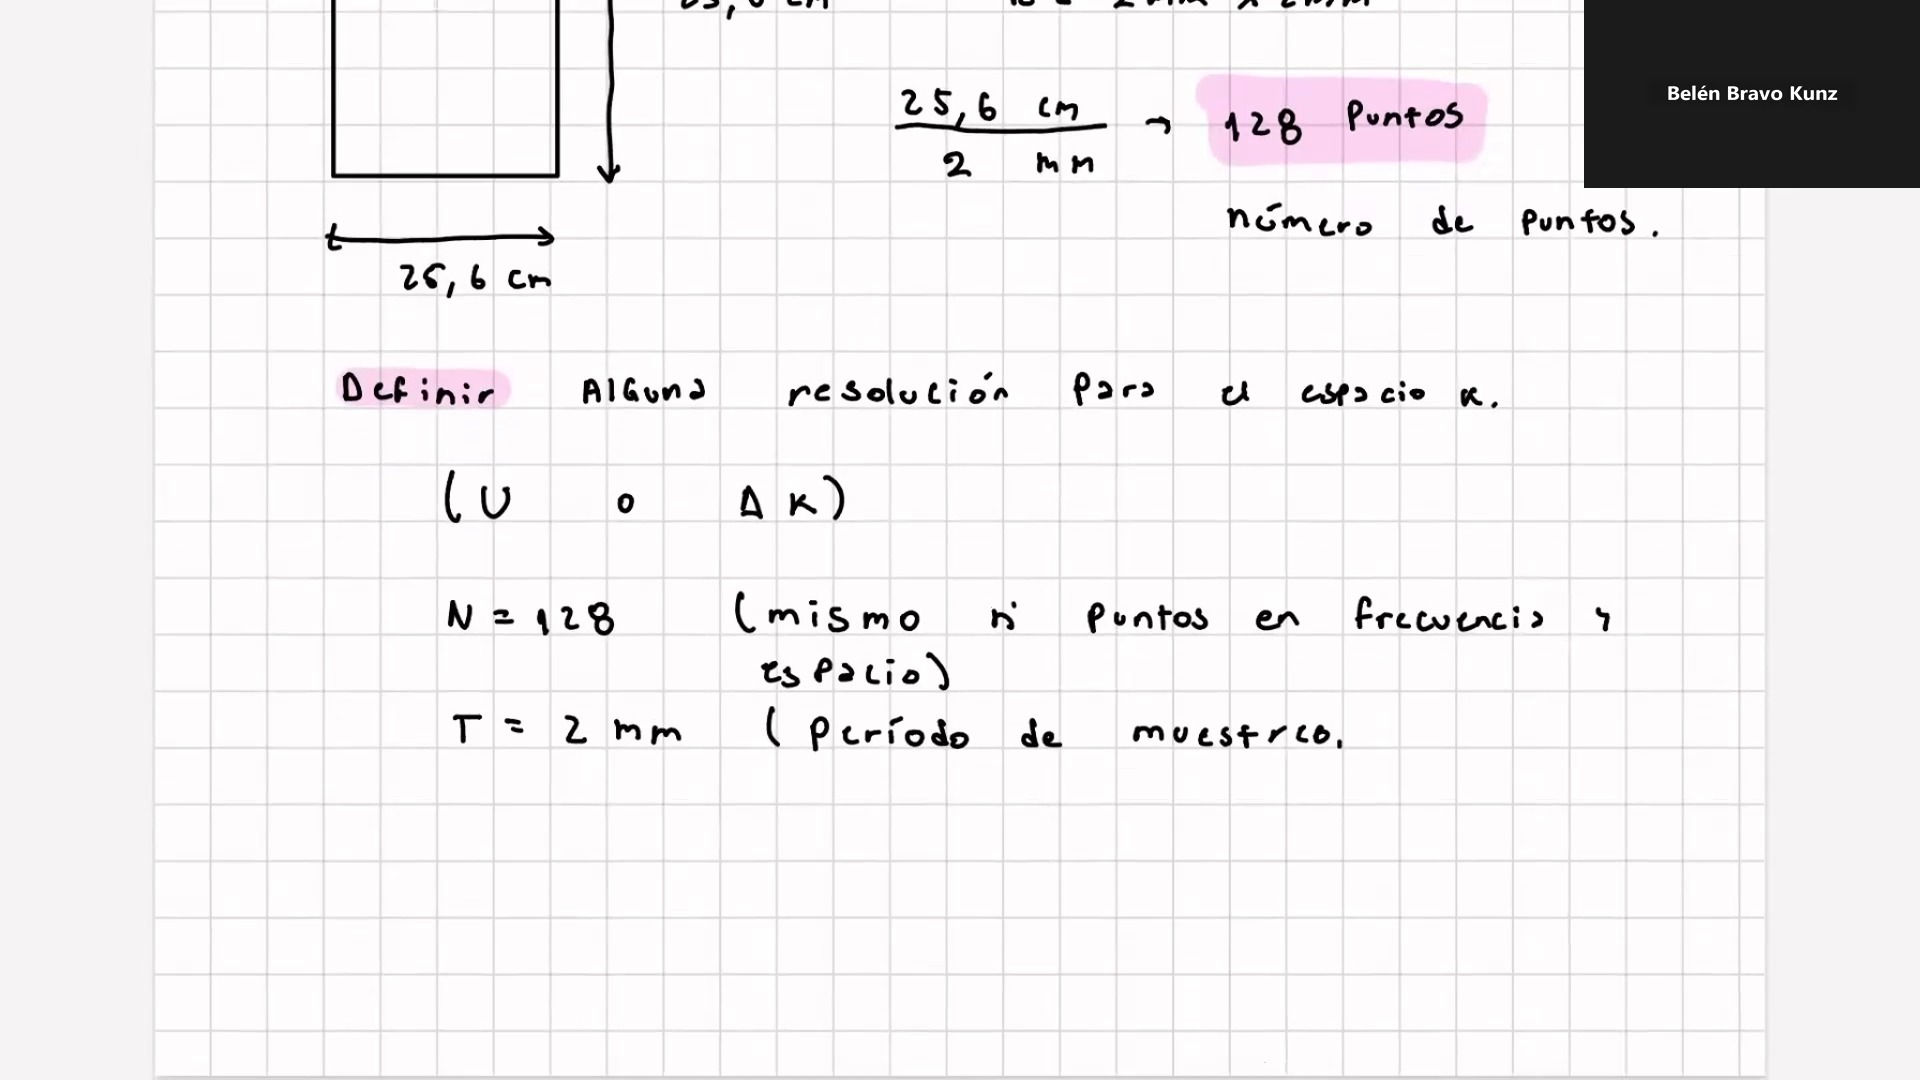 25,6 cm
2 mm
→ 128 Puntos
número de puntos.
25,6 cm
Definir Alguna resolución para el espacio k.
(U o Δk)
N = 128 (mismo n° puntos en frecuencia y
espacio)
T = 2 mm (Período de muestreo.
Belén Bravo Kunz